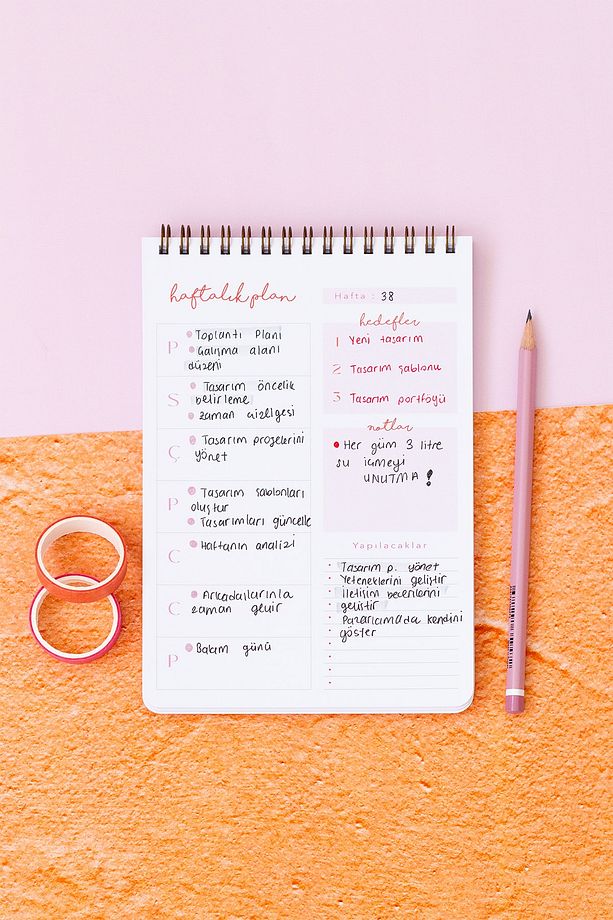 haftalık plan
P
Toplantı Planı
Çalışma alanı
düzeni
S
Tasarım öncelik
belirleme
zaman çizelgesi
Ç
Tasarım projelerini
yönet
P
Tasarım sablonları
oluştur
Tasarımları güncelle
C
Haftanın analizi
C
Arkadaşlarınla
zaman geçir
P
Bakım günü
Hafta : 38
hedefler
1 Yeni tasarım
2 Tasarım şablonu
3 Tasarım portföyü
notlar
Her güm 3 litre
su içmeyi
UNUTMA !
Yapılacaklar
Tasarım p. yönet
Yeteneklerini geliştir
İletişim becerilerini
geliştir
Pazarlamada kendini
göster